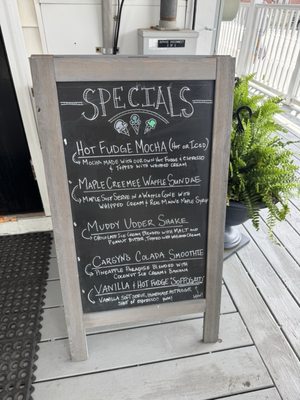 SPECIALS
HOT FUDGE MOCHA (HOT OR ICED)
MOCHA MADE WITH OUR OWN HOT FUDGE & ESPRESSO
& TOPPED WITH WHIPPED CREAM
MAPLE CREEMEE WAFFLE SUNDAE
MAPLE SOFT SERVE IN A WAFFLE CONE WITH
WHIPPED CREAM & REAL MAPLE SYRUP
MUDDY UDDER SHAKE
CHOCOLATE BLENDED WITH MALT AND
PEANUT BUTTER, TOPPED WITH WHIPPED CREAM
COLADA SMOOTHIE
PINEAPPLE PARADISE BLENDED WITH
COCONUT CREAM & BANANA
VANILLA & HOT FUDGE
VANILLA SOFT SERVE, HOMEMADE HOT FUDGE,
SHOT OF ESPRESSO